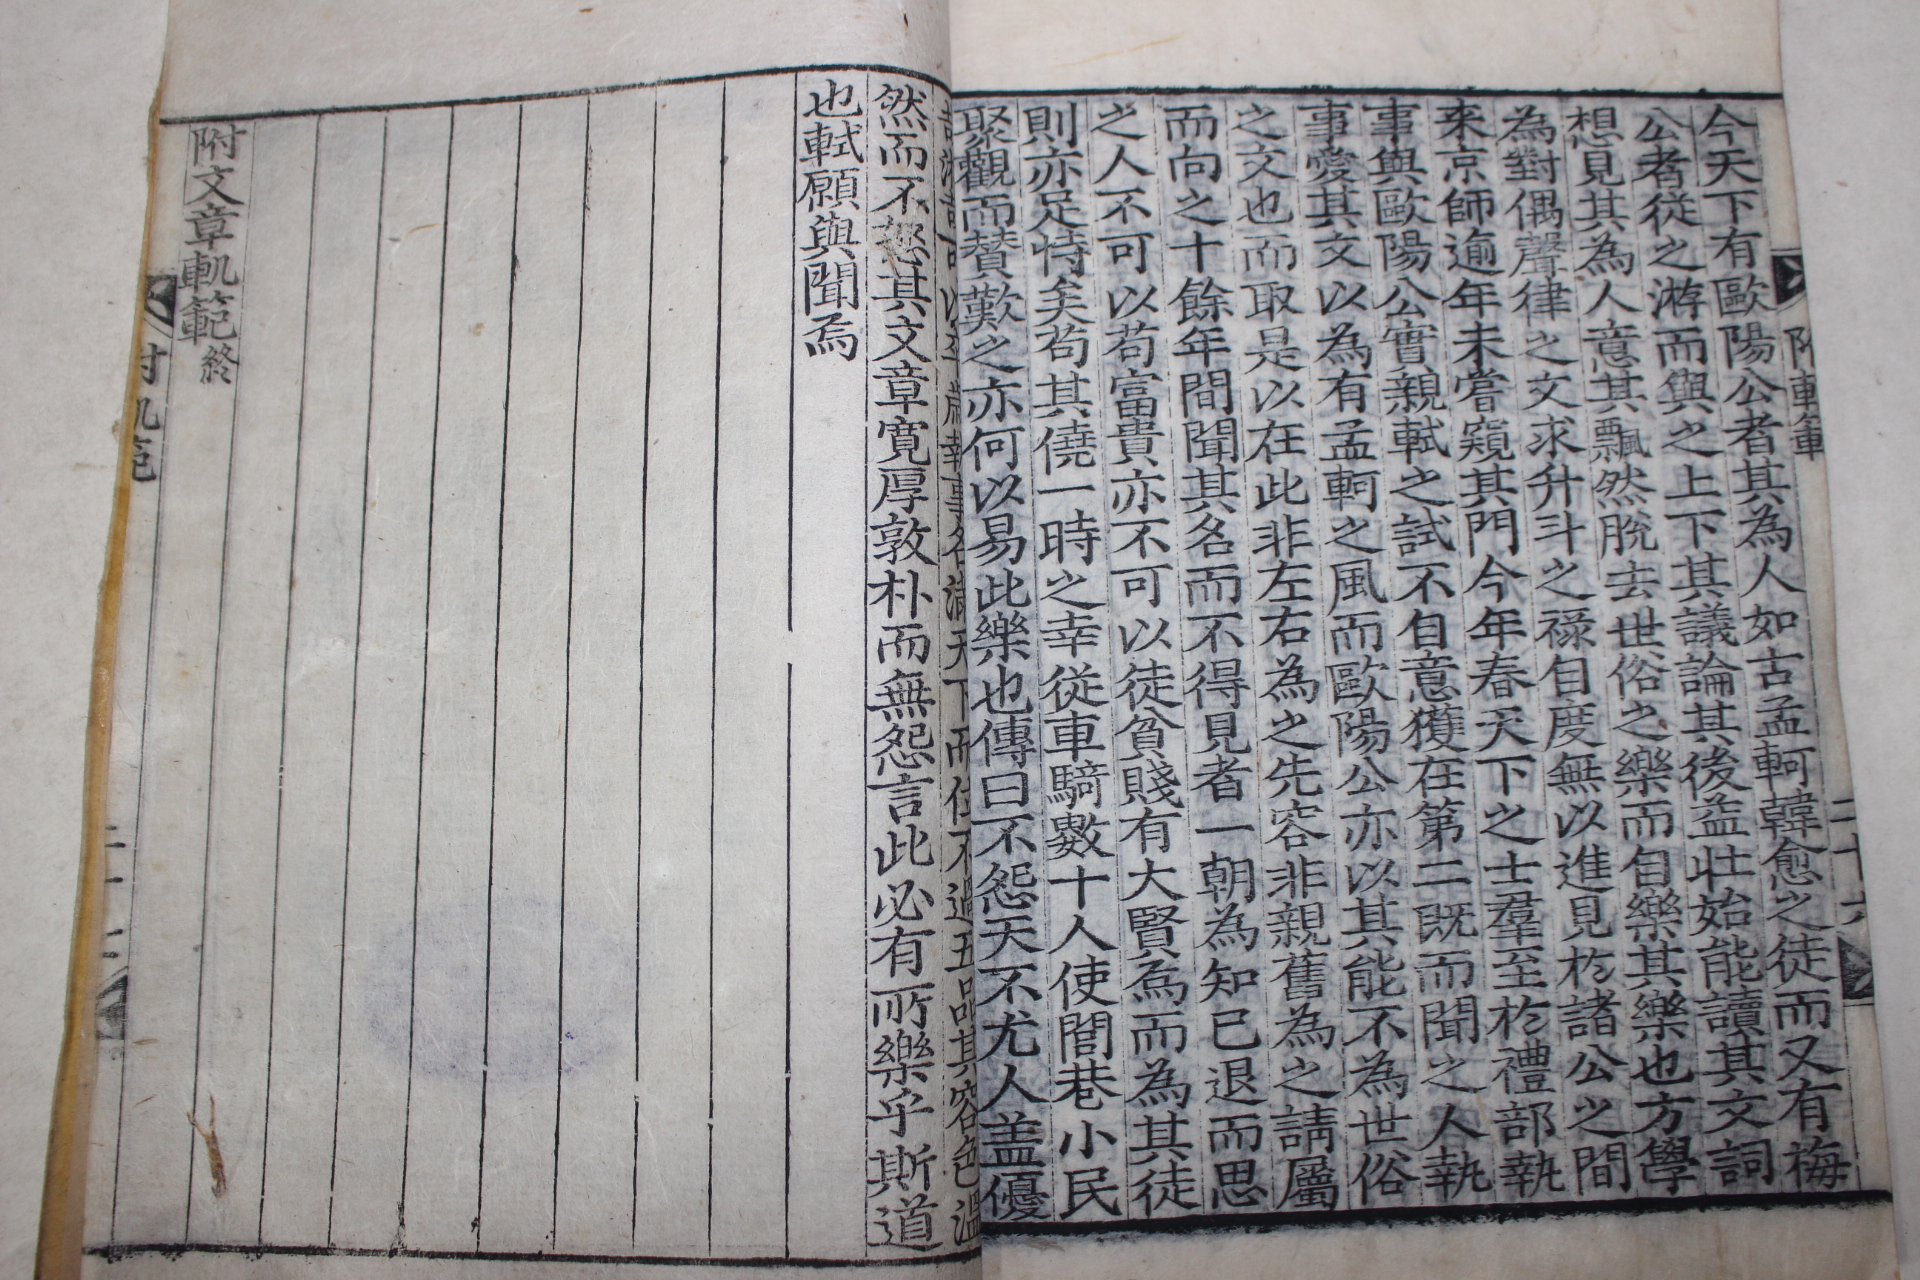 今天下有歐陽公者其為人如古孟軻韓愈之徒而又有梅
公者從之游而與之上下其議論其後益壯始能讀其文詞
想見其為人意其飄然脫去世俗之樂而自樂其樂也方學
為對偶聲律之文求升斗之祿自度無以進見於諸公之間
来京師逾年未嘗窺其門今年春天下之士羣至於禮部執
事與歐陽公實親軾之試不自意獲在第二既而聞之人執
事愛其文以為有孟軻之風而歐陽公亦以其能不為世俗
之文也而取是以在此非左右為之先容非親舊為之請屬
而向之十餘年間聞其名而不得見者一朝為知已退而思
之人不可以苟富貴亦不可以徒貧賤有大賢焉而為其徒
則亦足恃矣苟其僥一時之幸從車騎數十人使閭巷小民
聚觀而賛歎之亦何以易此樂也傳曰不怨天不尤人盖優
歲執事名滿天下而位不過五品其容色溫
然而不怒其文章寛厚敦朴而無怨言此必有所樂乎斯道
也軾願與聞焉
附文章軌範終
附軌範
二十六